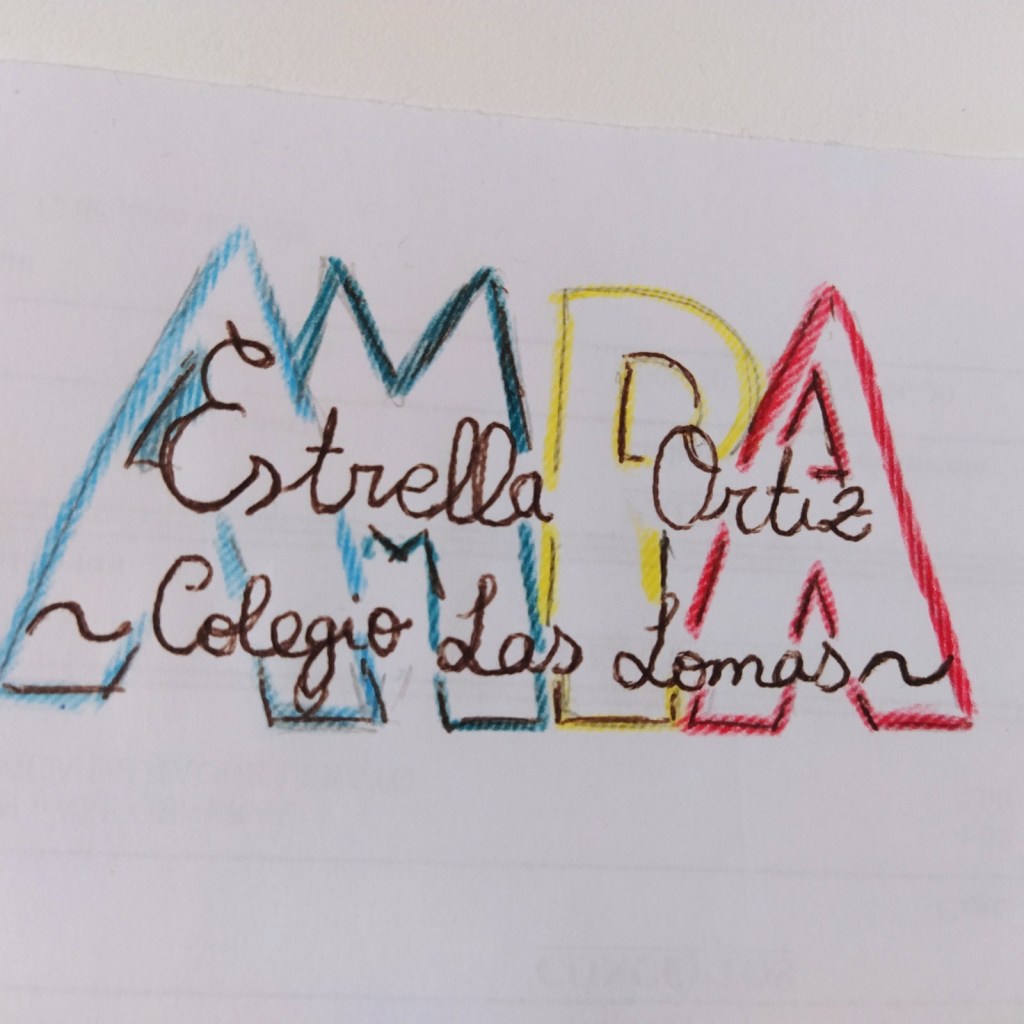 AMPA
Estrella Ortiz
~ Colegio Las Lomas ~